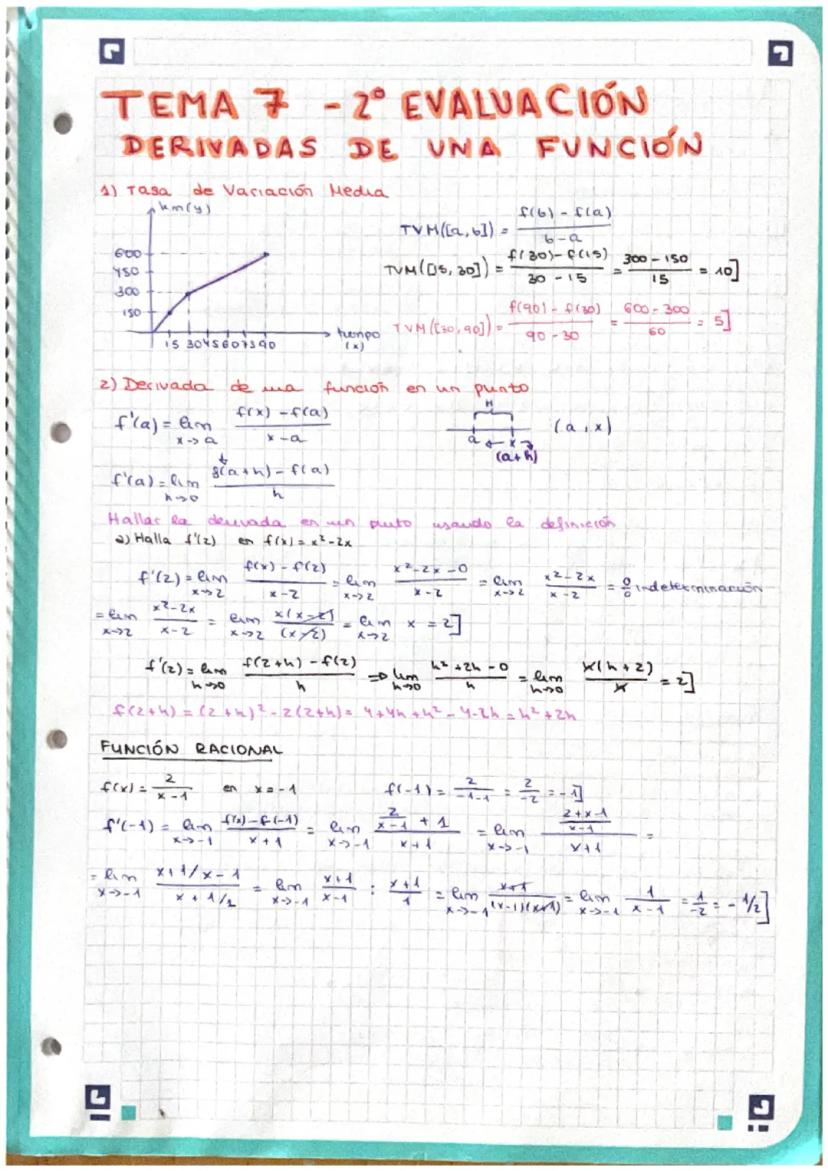 TEMA 7 - 2º EVALUACIÓN
DERIVADAS DE UNA FUNCIÓN
1) Tasa de Variación Media
km(y)
600
450
300
150
15 30 45 60 75 90
tiempo
(x)
TVM([a,b]) = f(b) - f(a) / b-a
TVM([15, 30]) = f(30) - f(15) / 30 - 15 = 300 - 150 / 15 = 10]
TVM([30, 90]) = f(90) - f(30) / 90 - 30 = 600 - 300 / 60 = 5]
2) Derivada de una función en un punto
f'(a) = lim x→a f(x) - f(a) / x-a
H
a ← x
(a+h)
(a, x)
f'(a) = lim h→0 f(a+h) - f(a) / h
Hallar la derivada en un punto usando la definición
a) Halla f'(2) en f(x) = x²-2x
f'(2) = lim x→2 f(x) - f(2) / x-2 = lim x→2 x²-2x-0 / x-2 = lim x→2 x²-2x / x-2 = 0/0 indeterminación
= lim x→2 x²-2x / x-2 = lim x→2 x(x-2) / (x-2) = lim x→2 x = 2]
f'(2) = lim h→0 f(2+h) - f(2) / h ⇒ lim h→0 h²+2h-0 / h = lim h→0 h(h+2) / h = 2]
f(2+h) = (2+h)² - 2(2+h) = 4+4h+h²-4-2h = h²+2h
FUNCIÓN RACIONAL
f(x) = 2 / x-1 en x = -1 f(-1) = 2 / -1-1 = 2 / -2 = -1]
f'(-1) = lim x→-1 f(x) - f(-1) / x+1 = lim x→-1 2/x-1 + 1 / x+1 = lim x→-1 2+x-1/x-1 / x+1 =
= lim x→-1 x+1/x-1 / x+1/1 = lim x→-1 x+1 / x-1 : x+1 / 1 = lim x→-1 x+1 / (x-1)(x+1) = lim x→-1 1 / x-1 = 1 / -2 = -1/2]